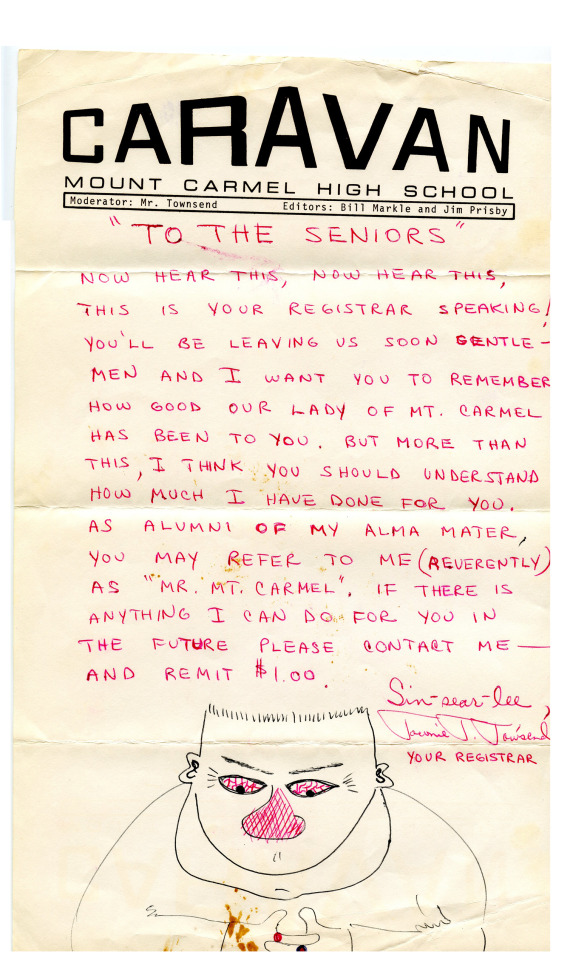 CARAVAN
MOUNT CARMEL HIGH SCHOOL
Moderator: Mr. Townsend Editors: Bill Markle and Jim Prisby
"TO THE SENIORS"
NOW HEAR THIS, NOW HEAR THIS,
THIS IS YOUR REGISTRAR SPEAKING!
YOU'LL BE LEAVING US SOON GENTLE-
MEN AND I WANT YOU TO REMEMBER
HOW GOOD OUR LADY OF MT. CARMEL
HAS BEEN TO YOU. BUT MORE THAN
THIS, I THINK YOU SHOULD UNDERSTAND
HOW MUCH I HAVE DONE FOR YOU.
AS ALUMNI OF MY ALMA MATER,
YOU MAY REFER TO ME (REVERENTLY)
AS "MR. MT. CARMEL". IF THERE IS
ANYTHING I CAN DO FOR YOU IN
THE FUTURE PLEASE CONTACT ME —
AND REMIT $1.00.
Sin-sear-lee,
J. Townsend
YOUR REGISTRAR